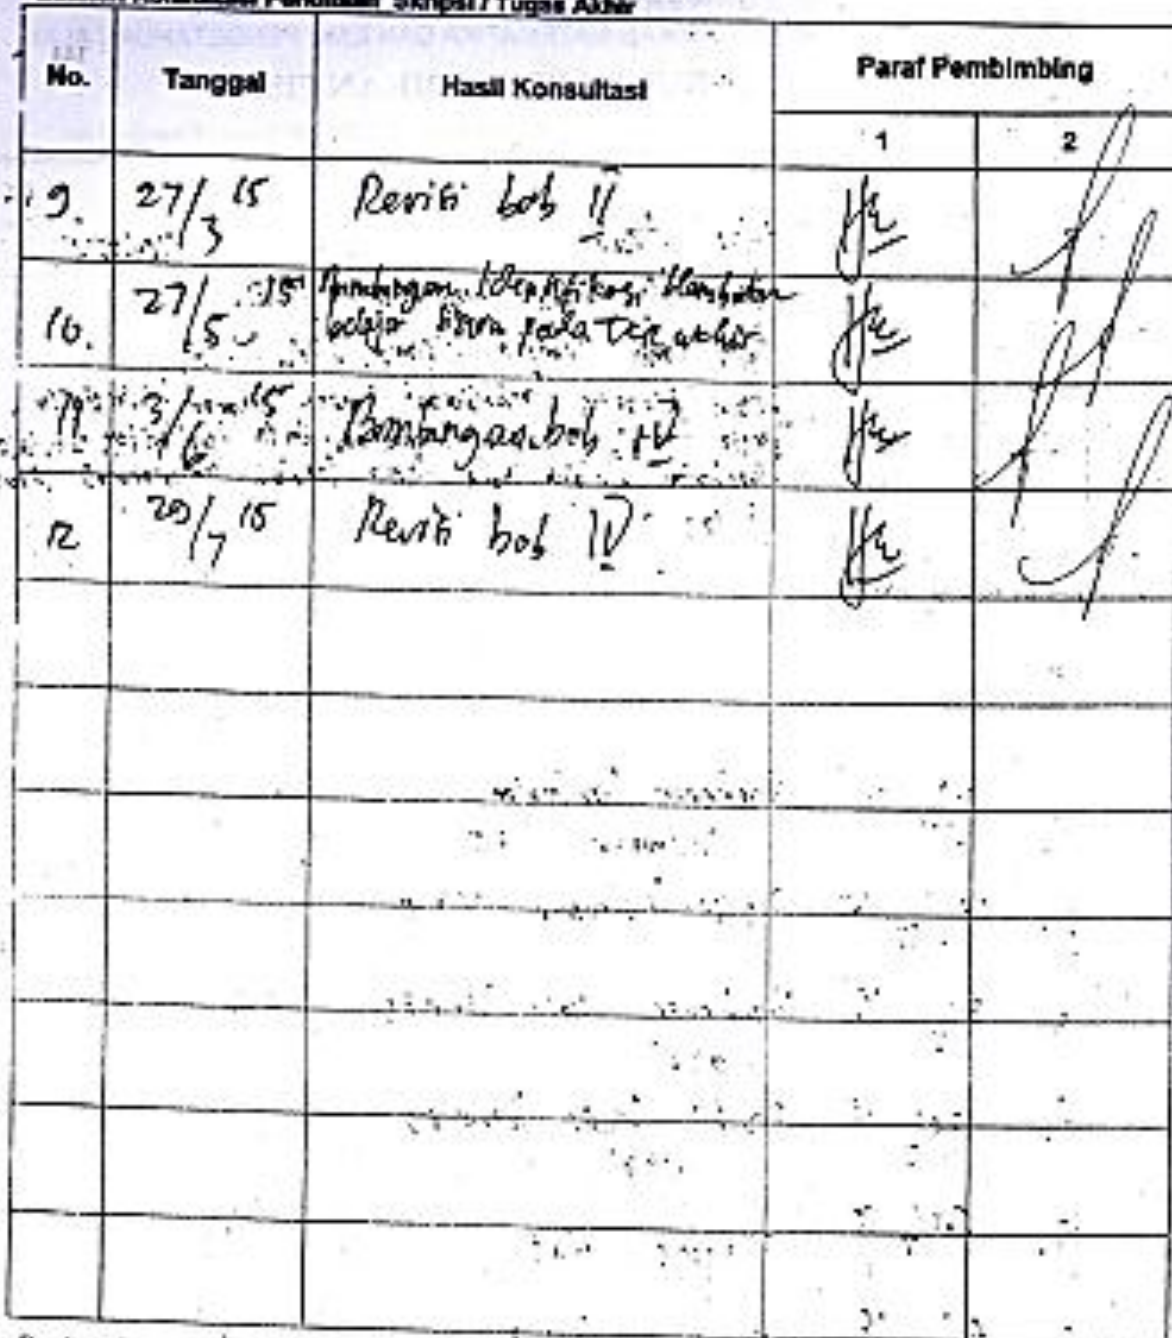 Skripsi / Tugas Akhir
No. Tanggal Hasil Konsultasi Paraf Pembimbing
1 2
9. 27/3 15 Revisi bab II
10. 27/5 15 Bimbingan Identifikasi Hambatan
belajar siswa pada tes akhir
11 3/6 15 Bimbingan bab IV
12 29/7 15 Revisi bab IV